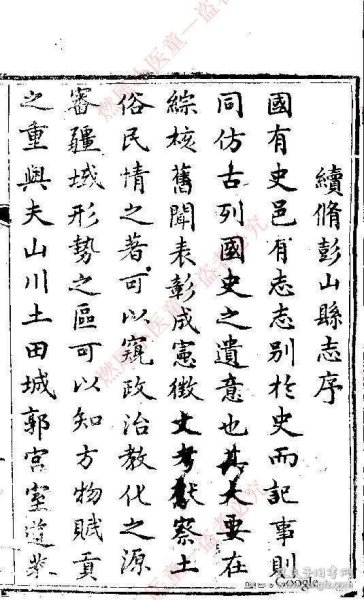 續脩彭山縣志序
國有史邑有志志別於史而記事則
同仿古列國史之遺意也其大要在
綜核舊聞表彰成憲徵文考獻察土
俗民情之著可以窺政治教化之源
審疆域形勢之區可以知方物賦貢
之重與夫山川土田城郭宮室
Google